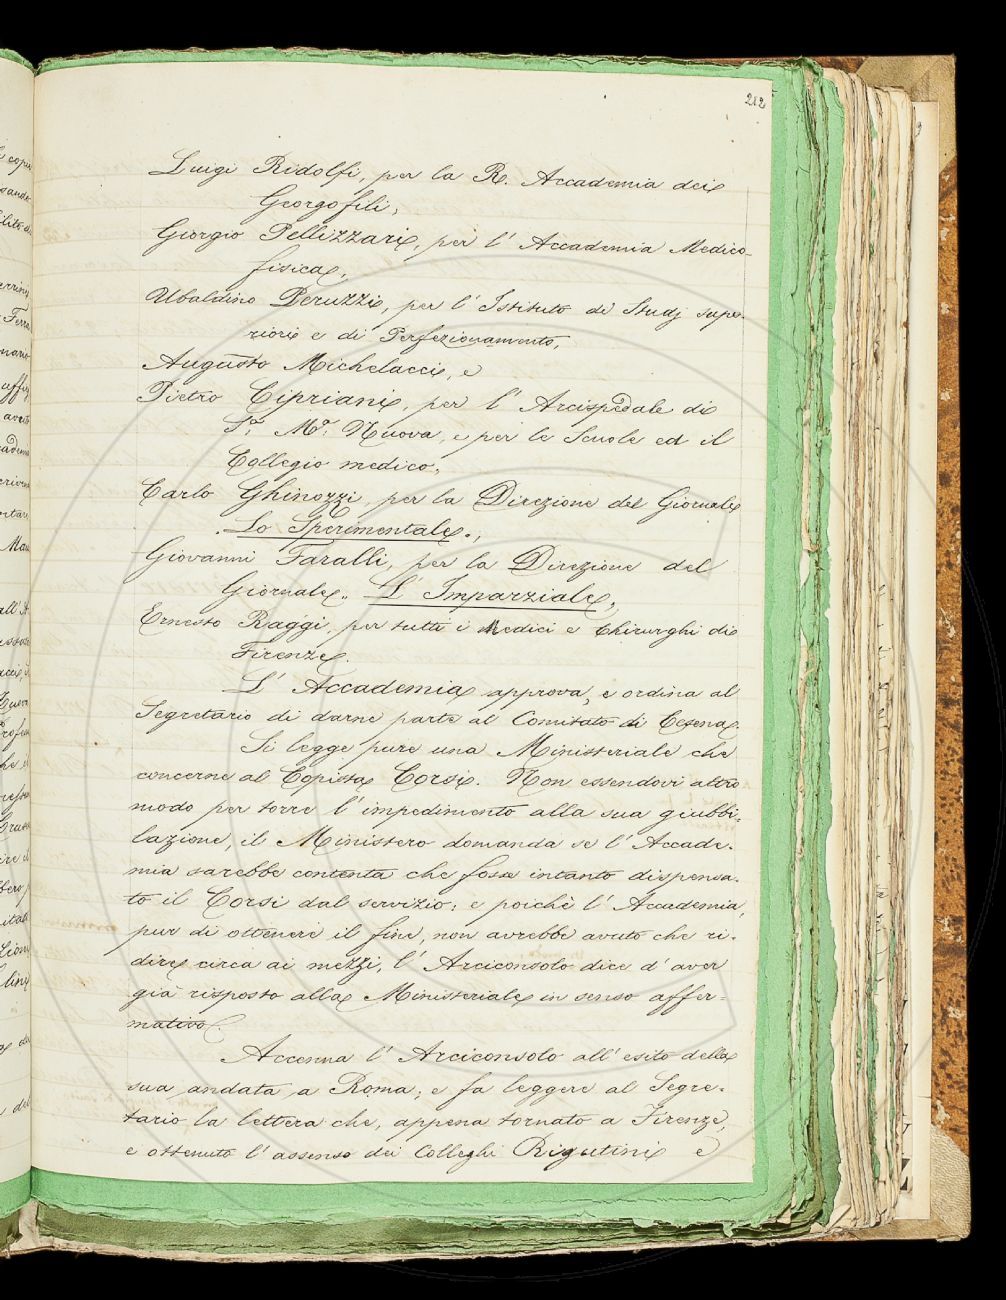 212
Luigi Ridolfi, per la R. Accademia dei
Georgofili;
Giorgio Pellizzari, per l'Accademia Medico-
fisica;
Ubaldino Peruzzi, per l'Istituto di Studj supe-
riori e di Perfezionamento;
Augusto Michelacci, e
Pietro Cipriani, per l'Arcispedale di
S.ª M.ª Nuova, e per le Scuole ed il
Collegio medico;
Carlo Ghinozzi, per la Direzione del Giornale
Lo Sperimentale;
Giovanni Faralli, per la Direzione del
Giornale L'Imparziale;
Ernesto Raggi, per tutti i Medici e Chirurghi di
Firenze.
L'Accademia approva, e ordina al
Segretario di darne parte al Comitato di Cesena.
Si legge pure una Ministeriale che
concerne al Copista Corsi. Non essendovi altro
modo per torre l'impedimento alla sua giubbi-
lazione, il Ministero domanda se l'Accade-
mia sarebbe contenta che fosse intanto dispensa-
to il Corsi dal servizio; e poichè l'Accademia,
pur di ottenere il fine, non avrebbe avuto che ri-
dire circa ai mezzi, l'Arciconsolo dice d'aver
già risposto alla Ministeriale in senso affer-
mativo.
Accenna l'Arciconsolo all'esito della
sua andata a Roma; e fa leggere al Segre-
tario la lettera che, appena tornato a Firenze,
e ottenuto l'assenso dei Colleghi Rigutini e